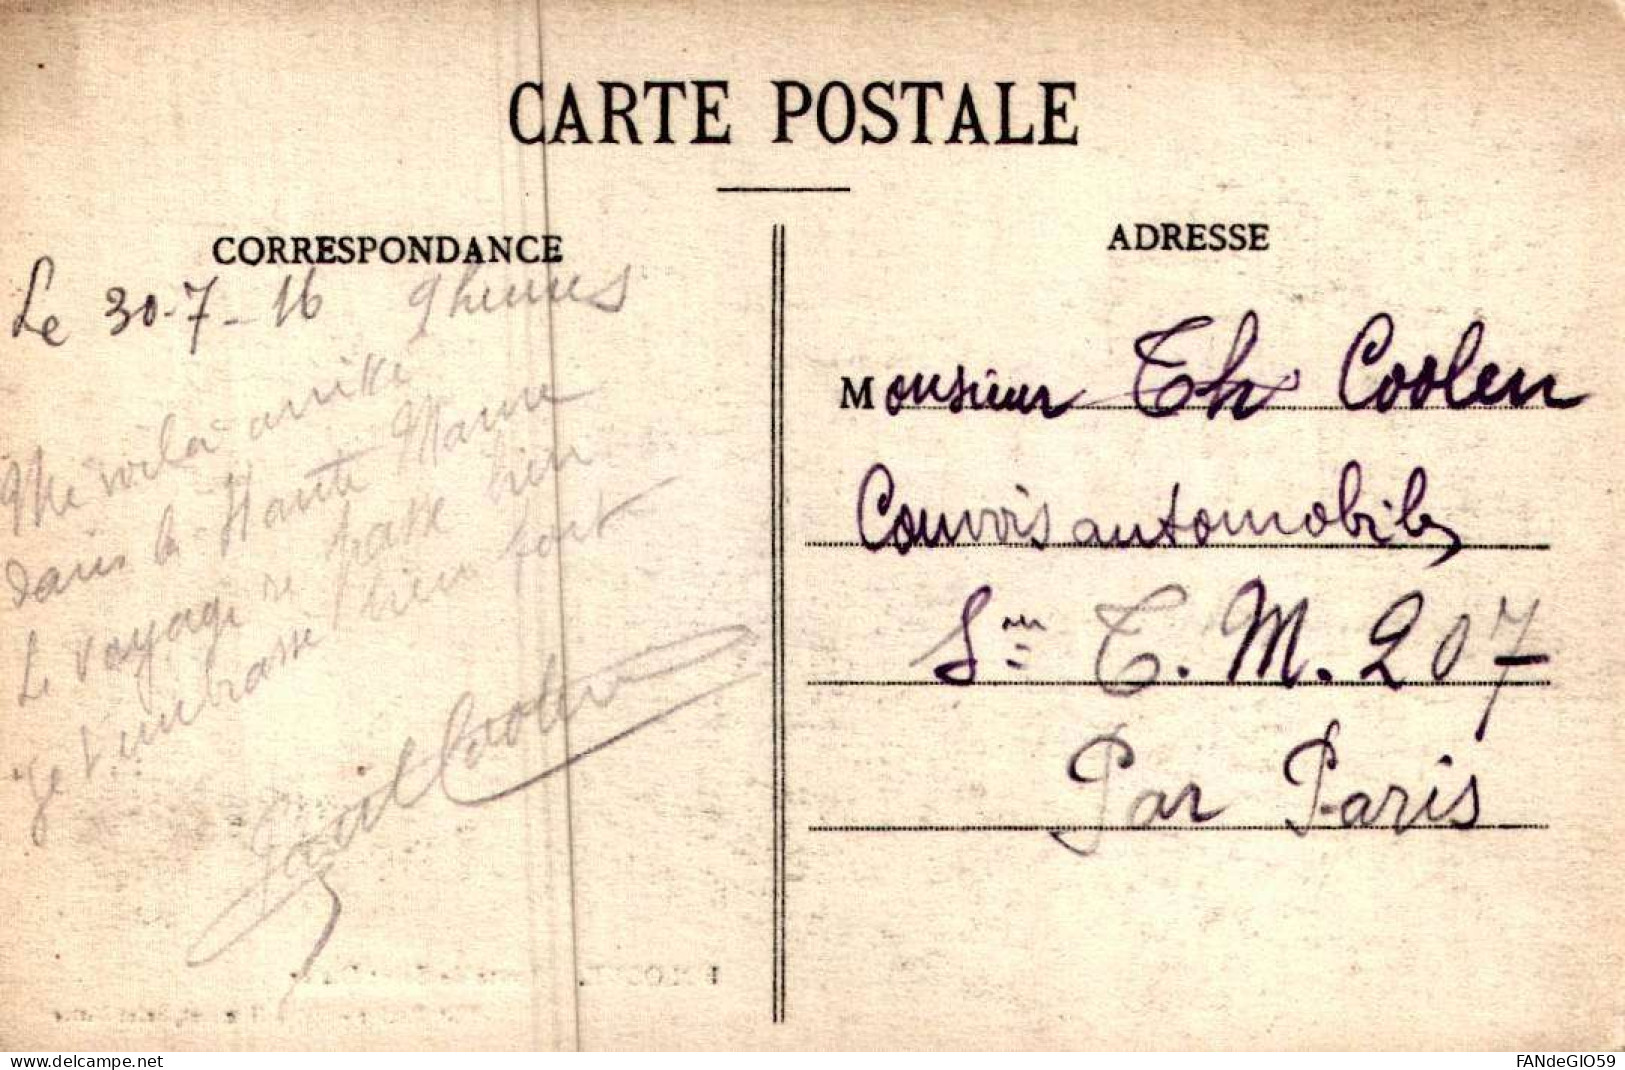 CARTE POSTALE
CORRESPONDANCE
Le 30-7-16 9 heures
Me voila arrivée
dans la Haute Marne
Le voyage se passe bien
Je t'embrasse bien fort
Coolen
ADRESSE
Monsieur Th Coolen
Convois automobiles
Son T. M. 207
Par Paris
www.delcampe.net
FANdeGIO59